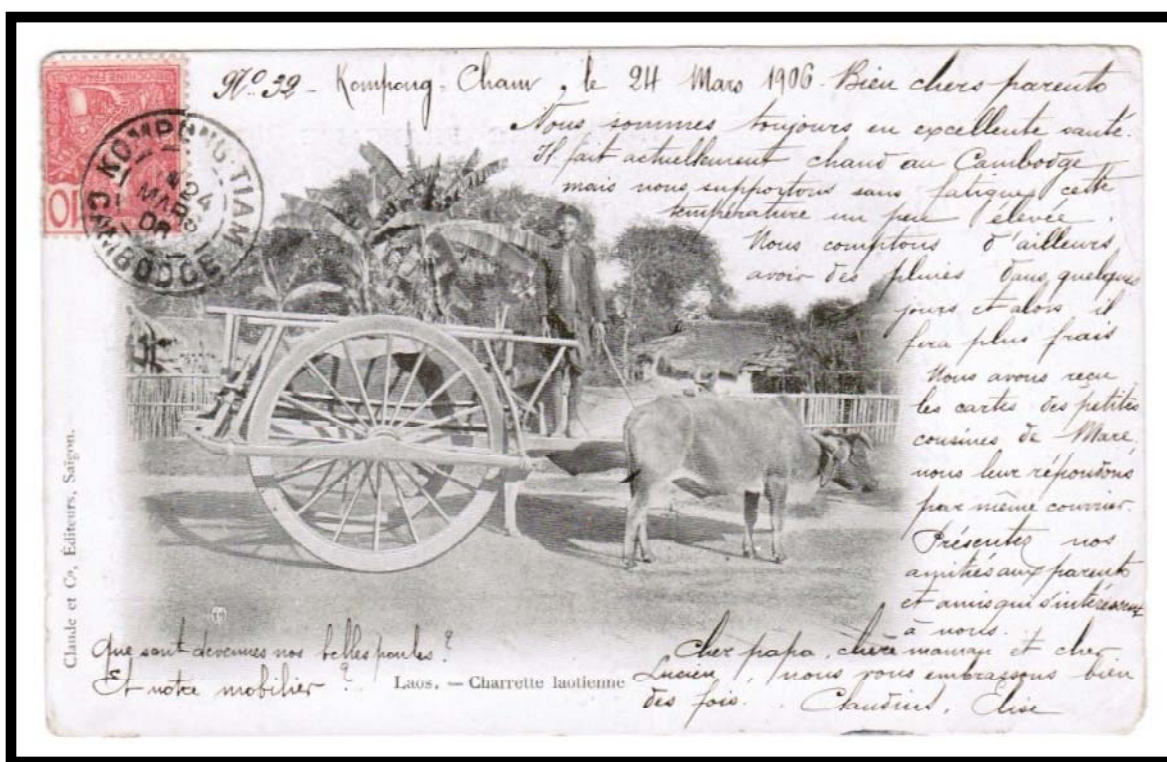 INDOCHINE FRANÇAISE
10
KOMPONG-TIAM
24
MARS
06
CAMBODGE
No. 32 - Kompong-Cham, le 24 Mars 1906. Bien chers parents
Nous sommes toujours en excellente santé.
Il fait actuellement chaud au Cambodge
mais nous supportons sans fatigue cette
température un peu élevée.
Nous comptons d'ailleurs
avoir des pluies dans quelques
jours et alors il
fera plus frais
Nous avons reçu
les cartes des petites
cousines de Mare.
nous leur répondons
par même courrier.
Présentez nos
amitiés aux parents
et amis qui s'intéressent
à nous.
Cher papa, chère maman et cher
Lucien, nous vous embrassons bien
des fois. Claudius, Elise
Que sont devenues nos belles poules ?
Et notre mobilier ?
Laos. — Charrette laotienne
Claude et Co, Editeurs, Saïgon.